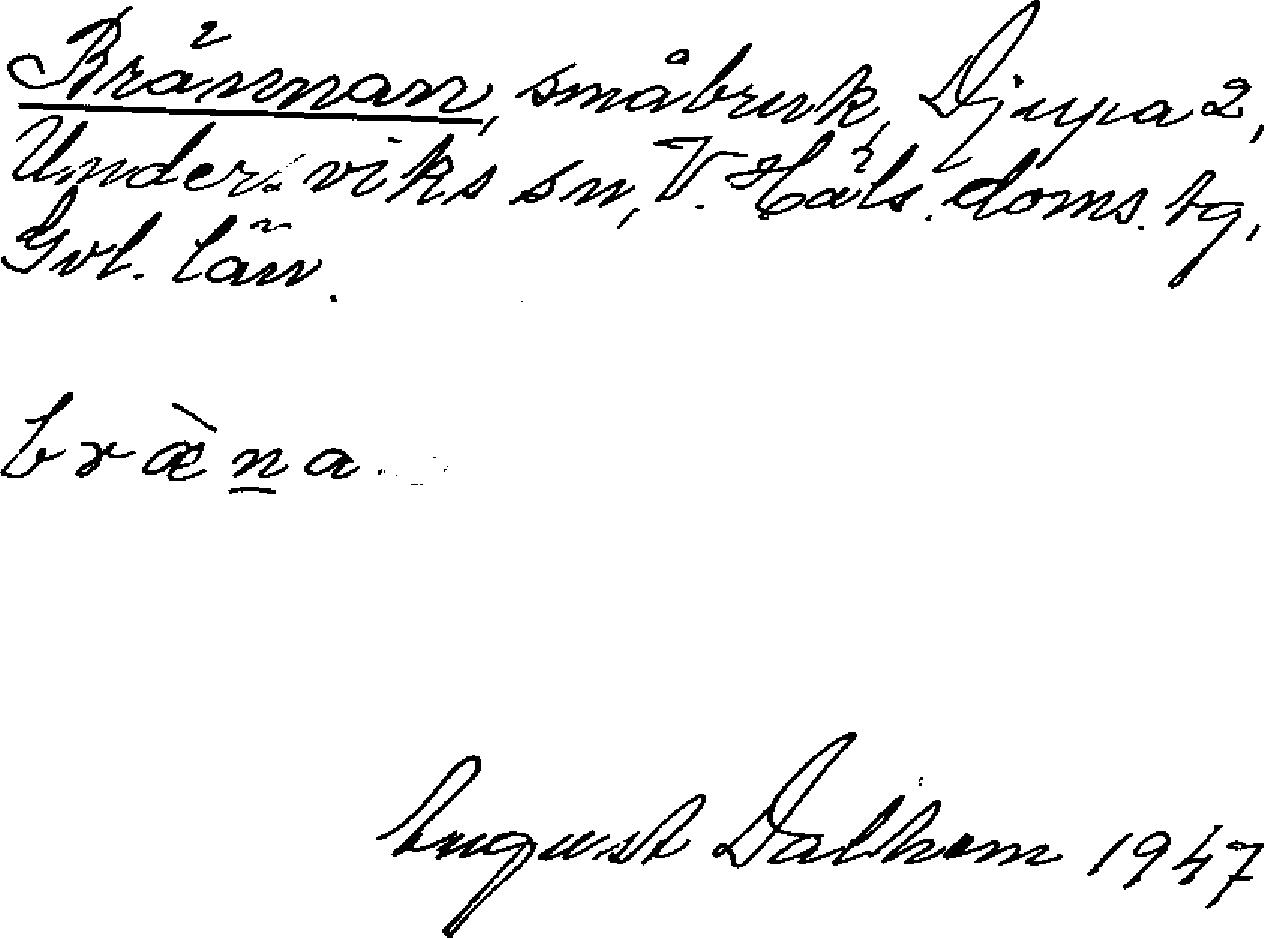 Brännan, småbruk, Djupa 2,
Underviks sn, V. Häls. doms. tg,
Gvl. län.
bræ̀n̲a.
August Dalhem 1947